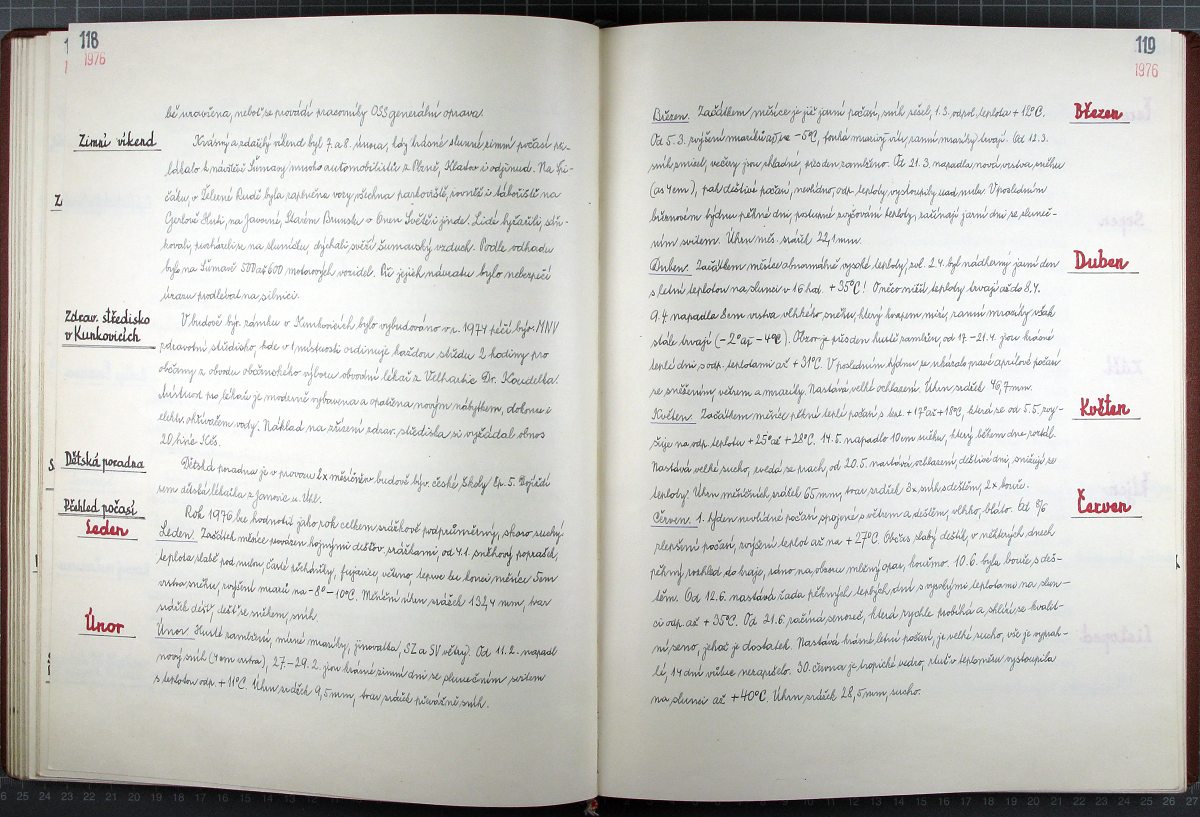 118
1976
bě uzavřena, neboť se provádí pracovníky OSS generální oprava.
Zimní víkend
Krásný a zdařilý víkend byl 7. a 8. února, kdy krásné slunné zimní počasí při-
lákalo k návštěvě Šumavy mnoho automobilistů z Plzně, Klatov i odjinud. Na Špi-
čáku, v Železné Rudě byla zaplněna vozy všechna parkoviště, rovněž i tábořiště na
Gerlově Huti, na Javorné, Starém Brunstu, v Onen Světě i jinde. Lidé lyžařili, sáň-
kovali, procházeli se na sluníčku, dýchali svěží šumavský vzduch. Podle odhadu
bylo na Šumavě 500 až 600 motorových vozidel. Při jejich návratu bylo nebezpečí
úrazu prodlévat na silnici.
Zdrav. středisko
v Kunkovicích
V budově býv. zámku v Kunkovicích bylo vybudováno v r. 1974 péčí býv. MNV
zdravotní středisko, kde v 1 místnosti ordinuje každou středu 2 hodiny pro
občany z obvodu občanského výboru obvodní lékař z Velhartic Dr. Koudelka.
Místnost pro lékaře je moderně vybavena a opatřena novým nábytkem, dokonce i
elektr. ohřívačem vody. Náklad na zřízení zdrav. střediska si vyžádal obnos
20 tisíc Kčs.
Dětská poradna
Dětská poradna je v provozu 1x měsíčně v budově býv. české školy čp. 5. Dojíždí
sem dětská lékařka z Janovic n. Úhl.
Přehled počasí
Rok 1976 lze hodnotit jako rok celkem srážkově podprůměrný, skoro suchý.
Leden
Leden. Začátek měsíce provázen hojnými dešťov. srážkami, od 4.1. sněhový poprašek,
teplota slabě pod nulou, časté přeháňky, fujavice, všeho teprve ke konci měsíce 5 cm
vrstva sněhu, zvýšení mrazů na -8° - 10°C. Měsíční úhrn srážek 132,4 mm, tvar
srážek déšť, déšť se sněhem, sníh.
Únor
Únor. Husté zamlžení, mírné mrazíky, jinovatka, SZ a SV větry. Od 11.2. napadl
nový sníh (4 cm vrstva), 27.-29.2. jsou krásné zimní dni se slunečním svitem
s teplotou odp. + 11°C. Úhrn srážek 9,5 mm, tvar srážek převážně sníh.
119
1976
Březen
Březen. Začátkem měsíce je již jarní počasí, sníh zešel, 1.3. odpol. teplota + 12°C.
Od 5.3. zvýšení mrazíků až na - 5°C, fouká mrazivý vítr, ranní mrazíky trvají. Od 12.3.
sníh zmizel, večery jsou chladné, přesden zamlženo. Od 21.3. napadla nová vrstva sněhu
(as 4 cm), pak deštivé počasí, nevlídno, odp. teploty vystoupily nad nulu. V posledním
březnovém týdnu pěkné dni, postupné zvyšování teploty, začínají jarní dni se sluneč-
ním svitem. Úhrn měs. srážek 22,1 mm.
Duben
Duben. Začátkem měsíce abnormálně vysoké teploty, zvl. 2.4. byl nádherný jarní den
s letní teplotou na slunci v 16 hod. + 35°C! O něco nižší teploty trvají až do 8.4.
9.4. napadla 8 cm vrstva vlhkého sněhu, který kvapem mizí, ranní mrazíky však
stále trvají (- 2° až - 4°C). Obzor je přesden hustě zamlžen, od 17.-21.4. jsou krásné
teplé dni s odp. teplotami až + 31°C. V posledním týdnu se ukázalo pravé aprílové počasí
se sněžením, větrem a mrazíky. Nastává velké ochlazení. Úhrn srážek 46,7 mm.
Květen
Květen. Začátkem měsíce pěkné teplé počasí s tep. + 17° až + 18°C, která se od 5.5. zvy-
šuje na odp. teplotu + 25° až + 28°C. 14.5. napadlo 10 cm sněhu, který během dne roztál.
Nastává velké sucho, zvedá se prach, od 20.5. nastává ochlazení, deštivé dni, snižují se
teploty. Úhrn měsíčních srážek 65 mm, tvar srážek 3x sníh s deštěm, 2x bouře.
Červen
Červen. 1. týden nevlídné počasí spojené s větrem a deštěm, vlhko, bláto. Od 8/6
zlepšení počasí, zvýšení teplot až na + 27°C. Občas slabý deštík, v některých dnech
pěkný rozhled do kraje, ráno na obzoru mléčný opar, kouřmo. 10.6. byla bouře s deš-
těm. Od 12.6. nastává řada pěkných teplých dní s vysokými teplotami na slun-
ci odp. až + 35°C. Od 21.6. začíná senoseč, která rychle probíhá a sklízí se kvalit-
ní seno, jehož je dostatek. Nastává krásné letní počasí, je velké sucho, vše je vyprah-
lé, 14 dní vůbec nezapršelo. 30. června je tropické vedro, rtuť v teploměru vystoupila
na slunci až + 40°C. Úhrn srážek 28,5 mm, sucho.